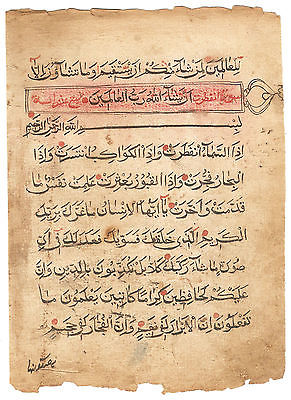 لِلْعَالَمِينَ لِمَنْ شَاءَ مِنْكُمْ اَنْ يَسْتَقِيمَ وَمَا تَشَاؤُنَ اِلَّا
سورة انفطرت اَنْ يَشَاءَ اللّٰهُ رَبُّ الْعَالَمِينَ
بِسْمِ اللّٰهِ الرَّحْمٰنِ الرَّحِيمِ
اِذَا السَّمَاءُ انْفَطَرَتْ وَاِذَا الْكَوَاكِبُ انْتَثَرَتْ وَاِذَا
الْبِحَارُ فُجِّرَتْ وَاِذَا الْقُبُورُ بُعْثِرَتْ عَلِمَتْ نَفْسٌ مَا
قَدَّمَتْ وَاَخَّرَتْ يَا اَيُّهَا الْاِنْسَانُ مَا غَرَّكَ بِرَبِّكَ
الْكَرِيمِ الَّذِي خَلَقَكَ فَسَوّٰيكَ فَعَدَلَكَ فِي اَيِّ
صُورَةٍ مَا شَاءَ رَكَّبَكَ كَلَّا بَلْ تُكَذِّبُونَ بِالدِّينِ وَاِنَّ
عَلَيْكُمْ لَحَافِظِينَ كِرَامًا كَاتِبِينَ يَعْلَمُونَ مَا
تَفْعَلُونَ اِنَّ الْاَبْرَارَ لَفِي نَعِيمٍ وَاِنَّ الْفُجَّارَ لَفِي جَحِيمٍ
يصلونها